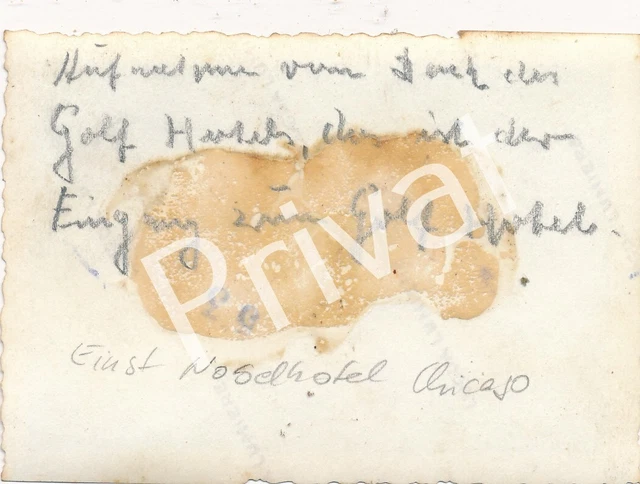 Aufnahme vom Dach des
Golf Hotels, das ist der
Eingang zum Golf Hotels.
Privat
Einst Nobelhotel Chicago